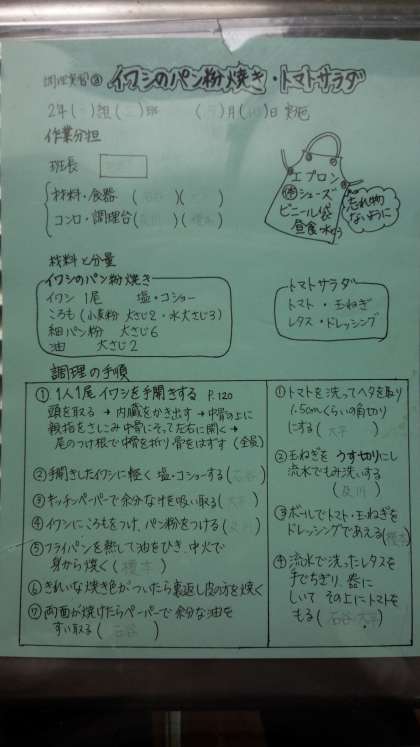 調理実習③ イワシのパン粉焼き・トマトサラダ
2年( )組( )班 ( )月( )日 実施
作業分担
班長
材料・食器 ( )( )
コンロ・調理台( )( )
エプロン
シューズ
ビニール袋
昼食
忘れ物
ないように
材料と分量
イワシのパン粉焼き
イワシ 1尾 塩・コショー
ころも (小麦粉 大さじ2・水大さじ3)
細パン粉 大さじ6
油 大さじ2
トマトサラダ
トマト・玉ねぎ
レタス・ドレッシング
調理の手順
①1人1尾 イワシを手開きする P.120
頭を取る→内臓をかき出す→中骨の上に
親指をさしこみ中骨にそって左右に開く→
尾のつけ根で中骨を折り骨をはずす (全員)
②手開きしたイワシに軽く 塩・コショーする(石谷)
③キッチンペーパーで余分な汁を吸い取る( )
④イワシにころもをつけ、パン粉をつける(及川)
⑤フライパンを熱して油をひき、中火で
身から焼く(榎本)
⑥きれいな焼き色がついたら裏返し皮の方を焼く
⑦両面が焼けたらペーパーで余分な油を
すい取る(石谷)
①トマトを洗ってヘタを取り
1.5cmくらいの角切り
にする( )
②玉ねぎを うす切りにし
流水でもみ洗いする
(及川)
③ボールでトマト・玉ねぎを
ドレッシングであえる(榎本)
④流水で洗ったレタスを
手でちぎり、器に
しいて その上にトマトを
もる(石谷・大平)